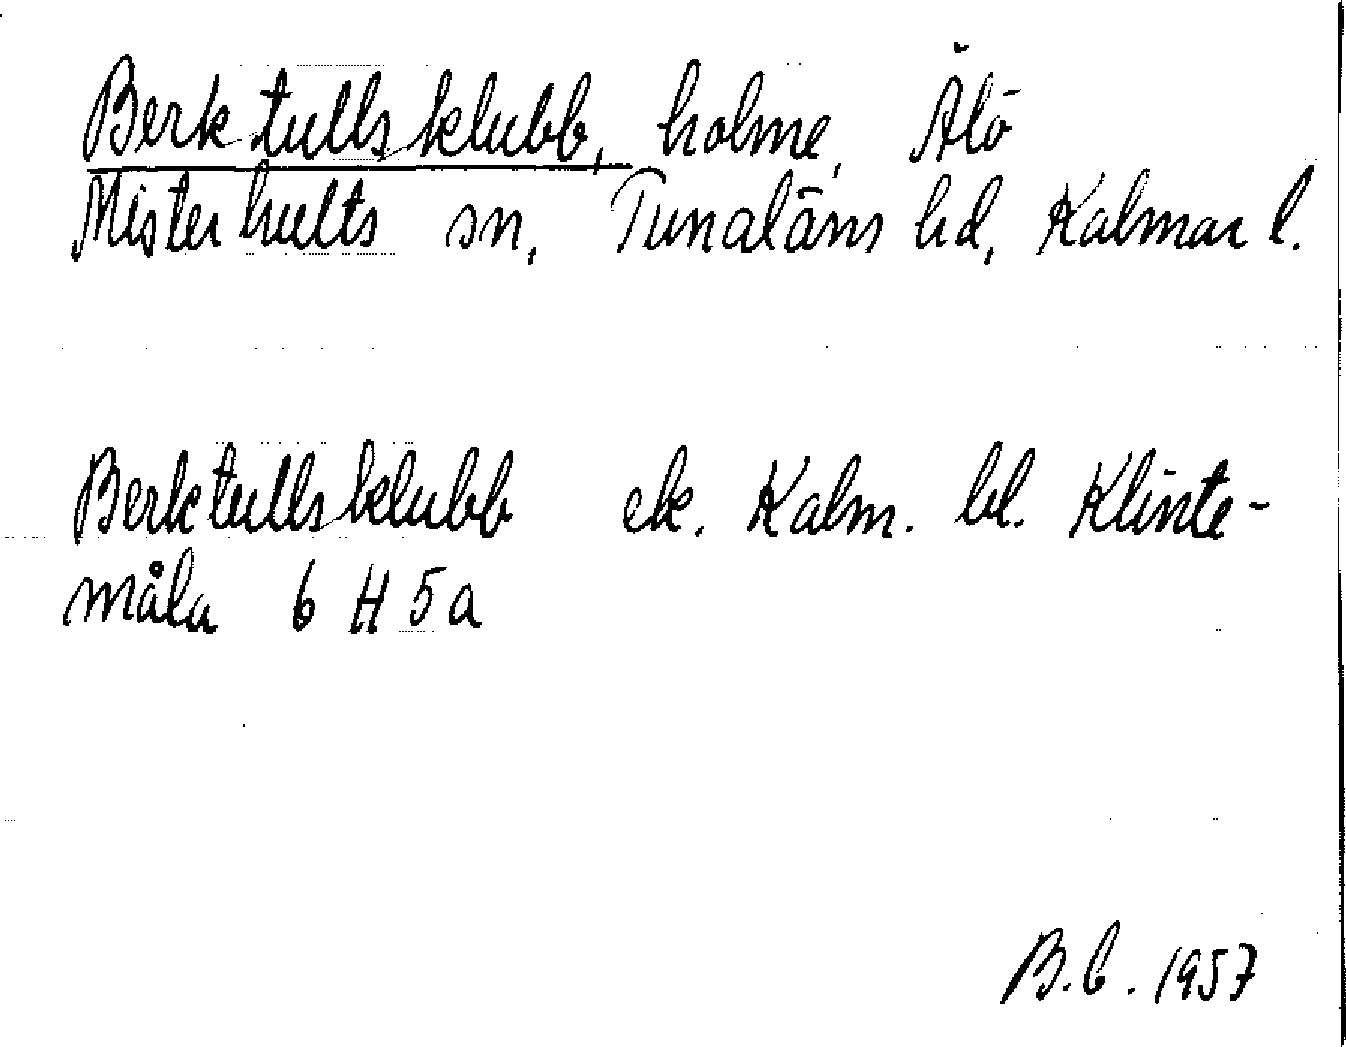 Berktullsklubb, holme, Älö
Misterhults sn, Tunaläns hd, Kalmar l.
Berktullsklubb ek. Kalm. bl. Klinte-
måla 6 H 5a
B.b. 1957